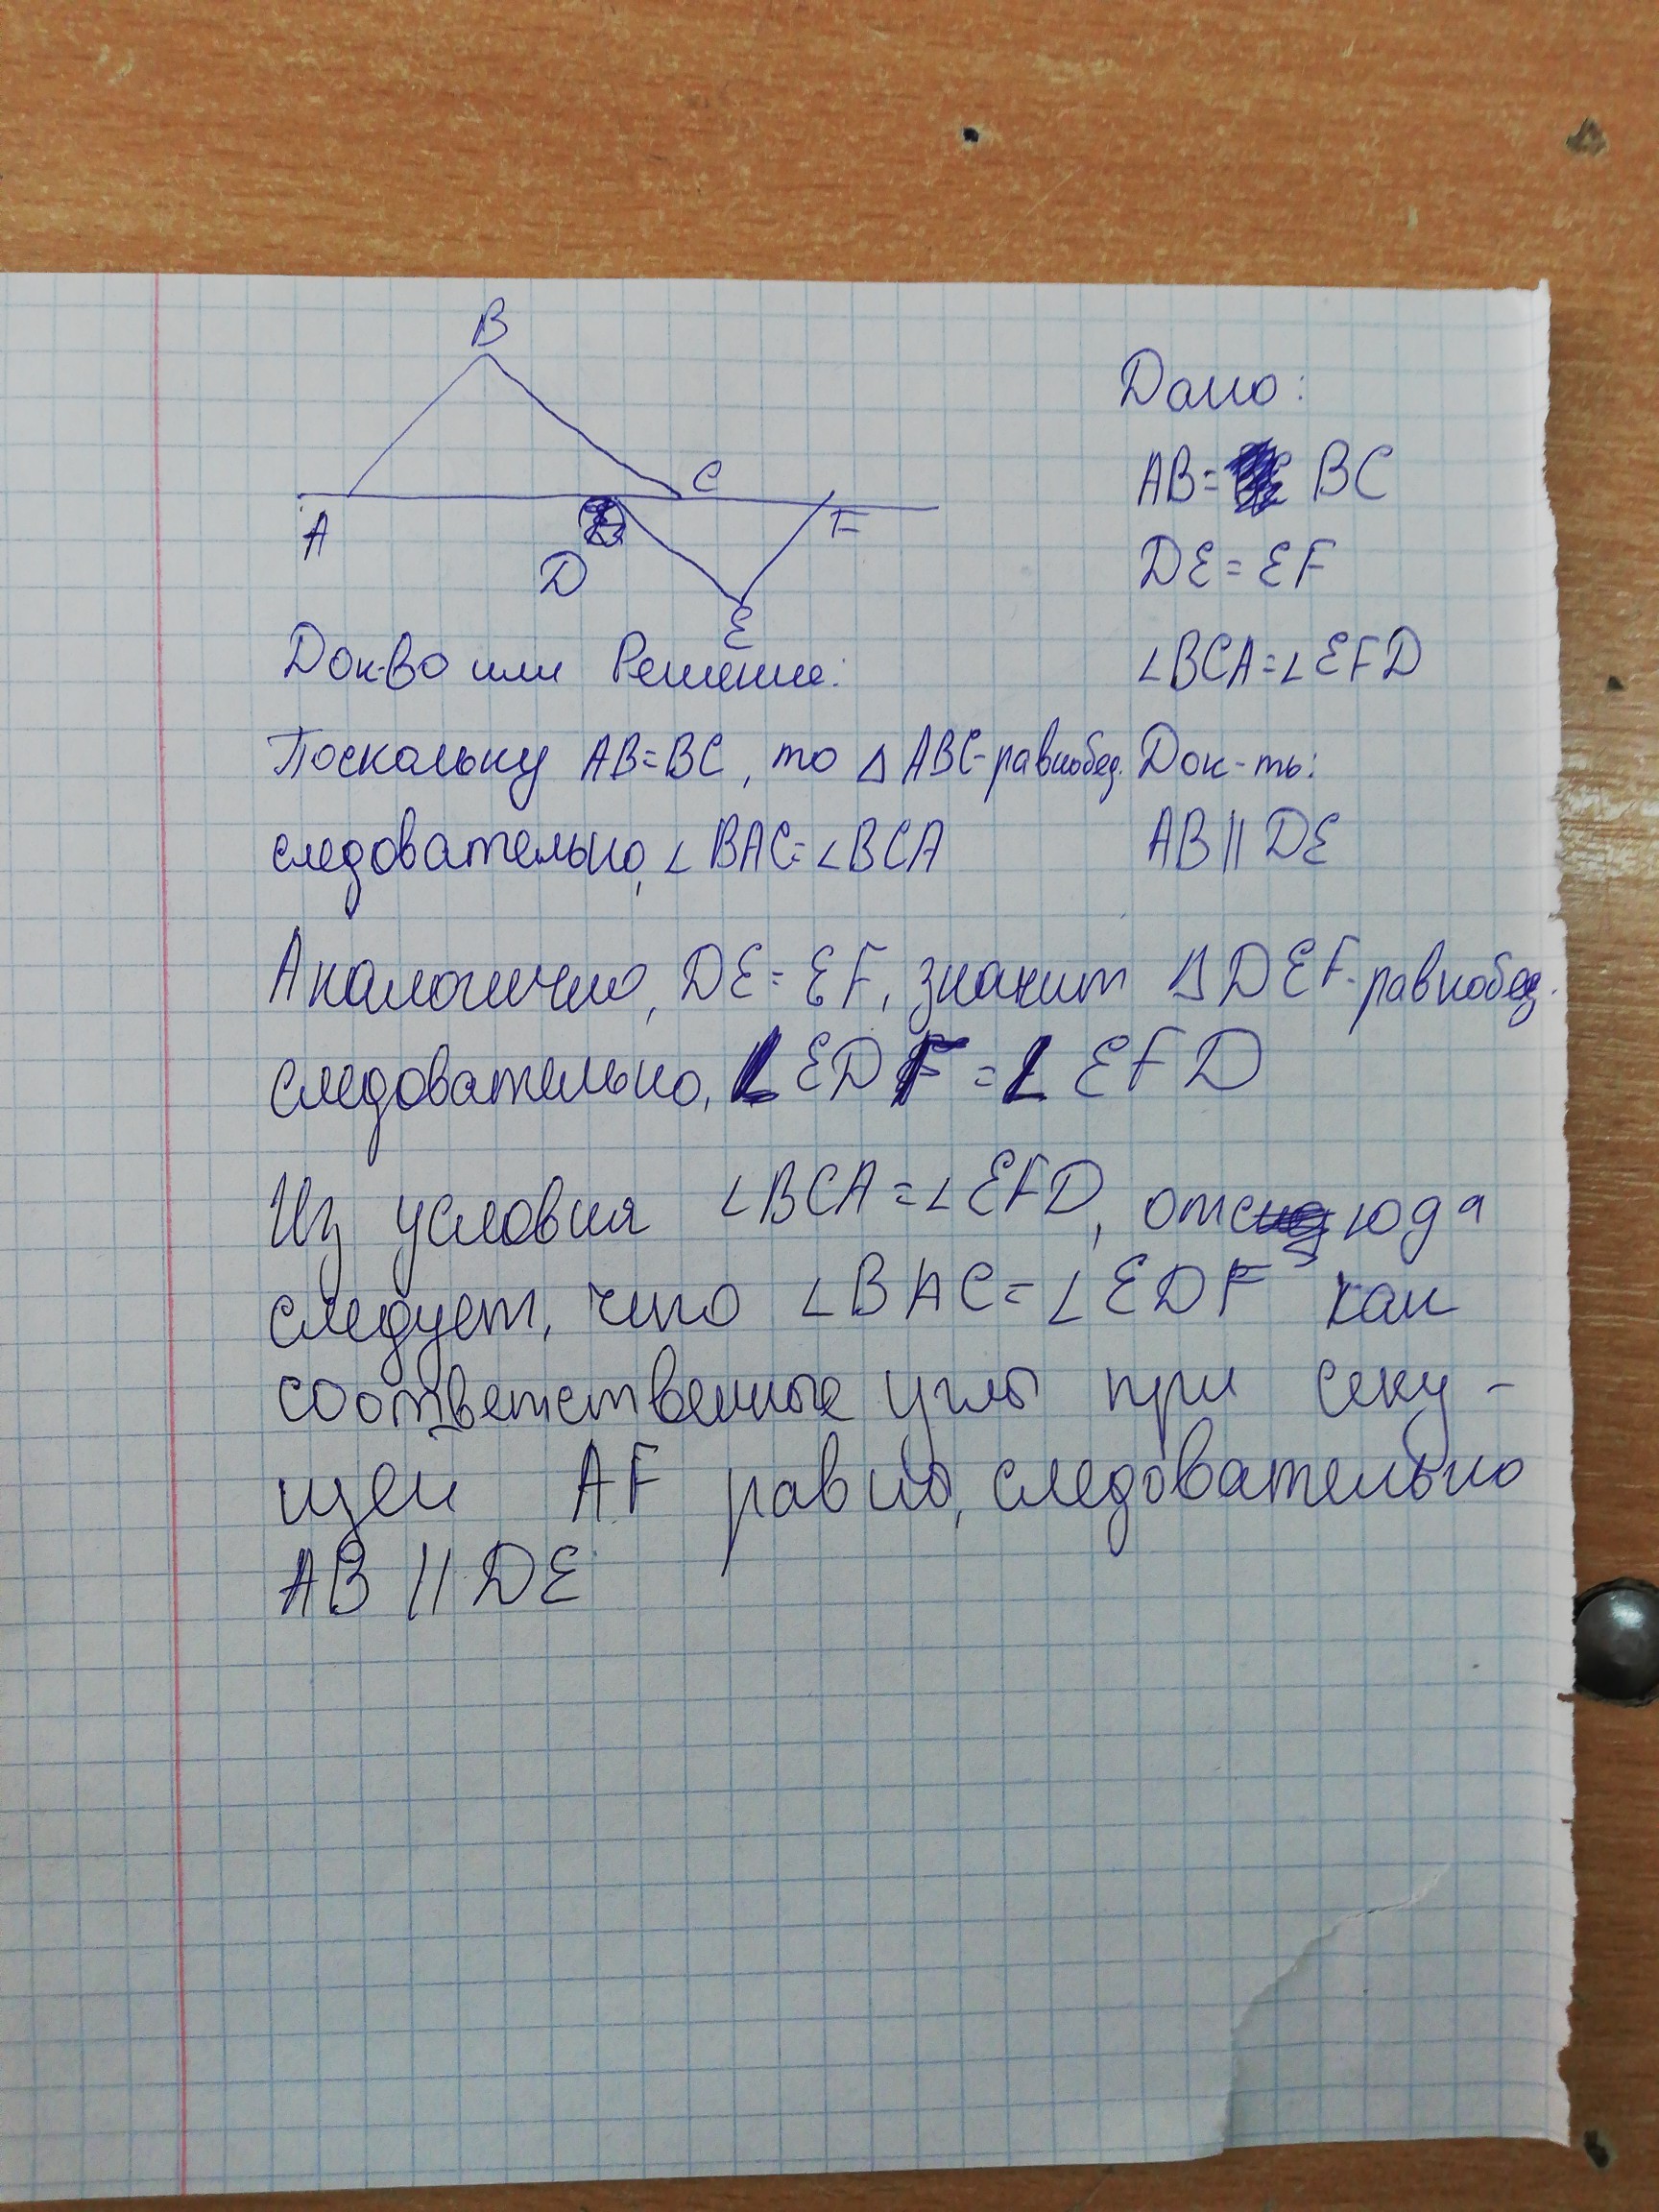 B
C
A
F
D
E
Дано:
AB= BC
DE=EF
∠BCA=∠EFD
Док-ть:
AB || DE
Док-во или Решение:
Поскольку AB=BC, то △ ABC-равнобед.
следовательно, ∠BAC=∠BCA
Аналогично, DE=EF, значит △DEF-равнобед.
следовательно, ∠EDF=∠EFD
Из условия ∠BCA=∠EFD, отсюда
следует, что ∠BAC=∠EDF как
соответственные углы при секу-
щей AF равны, следовательно
AB || DE